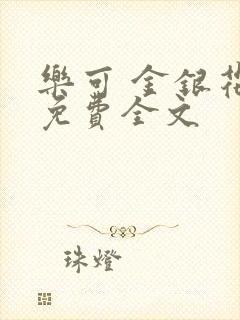 樂可 金銀花
免費全文
珠燈